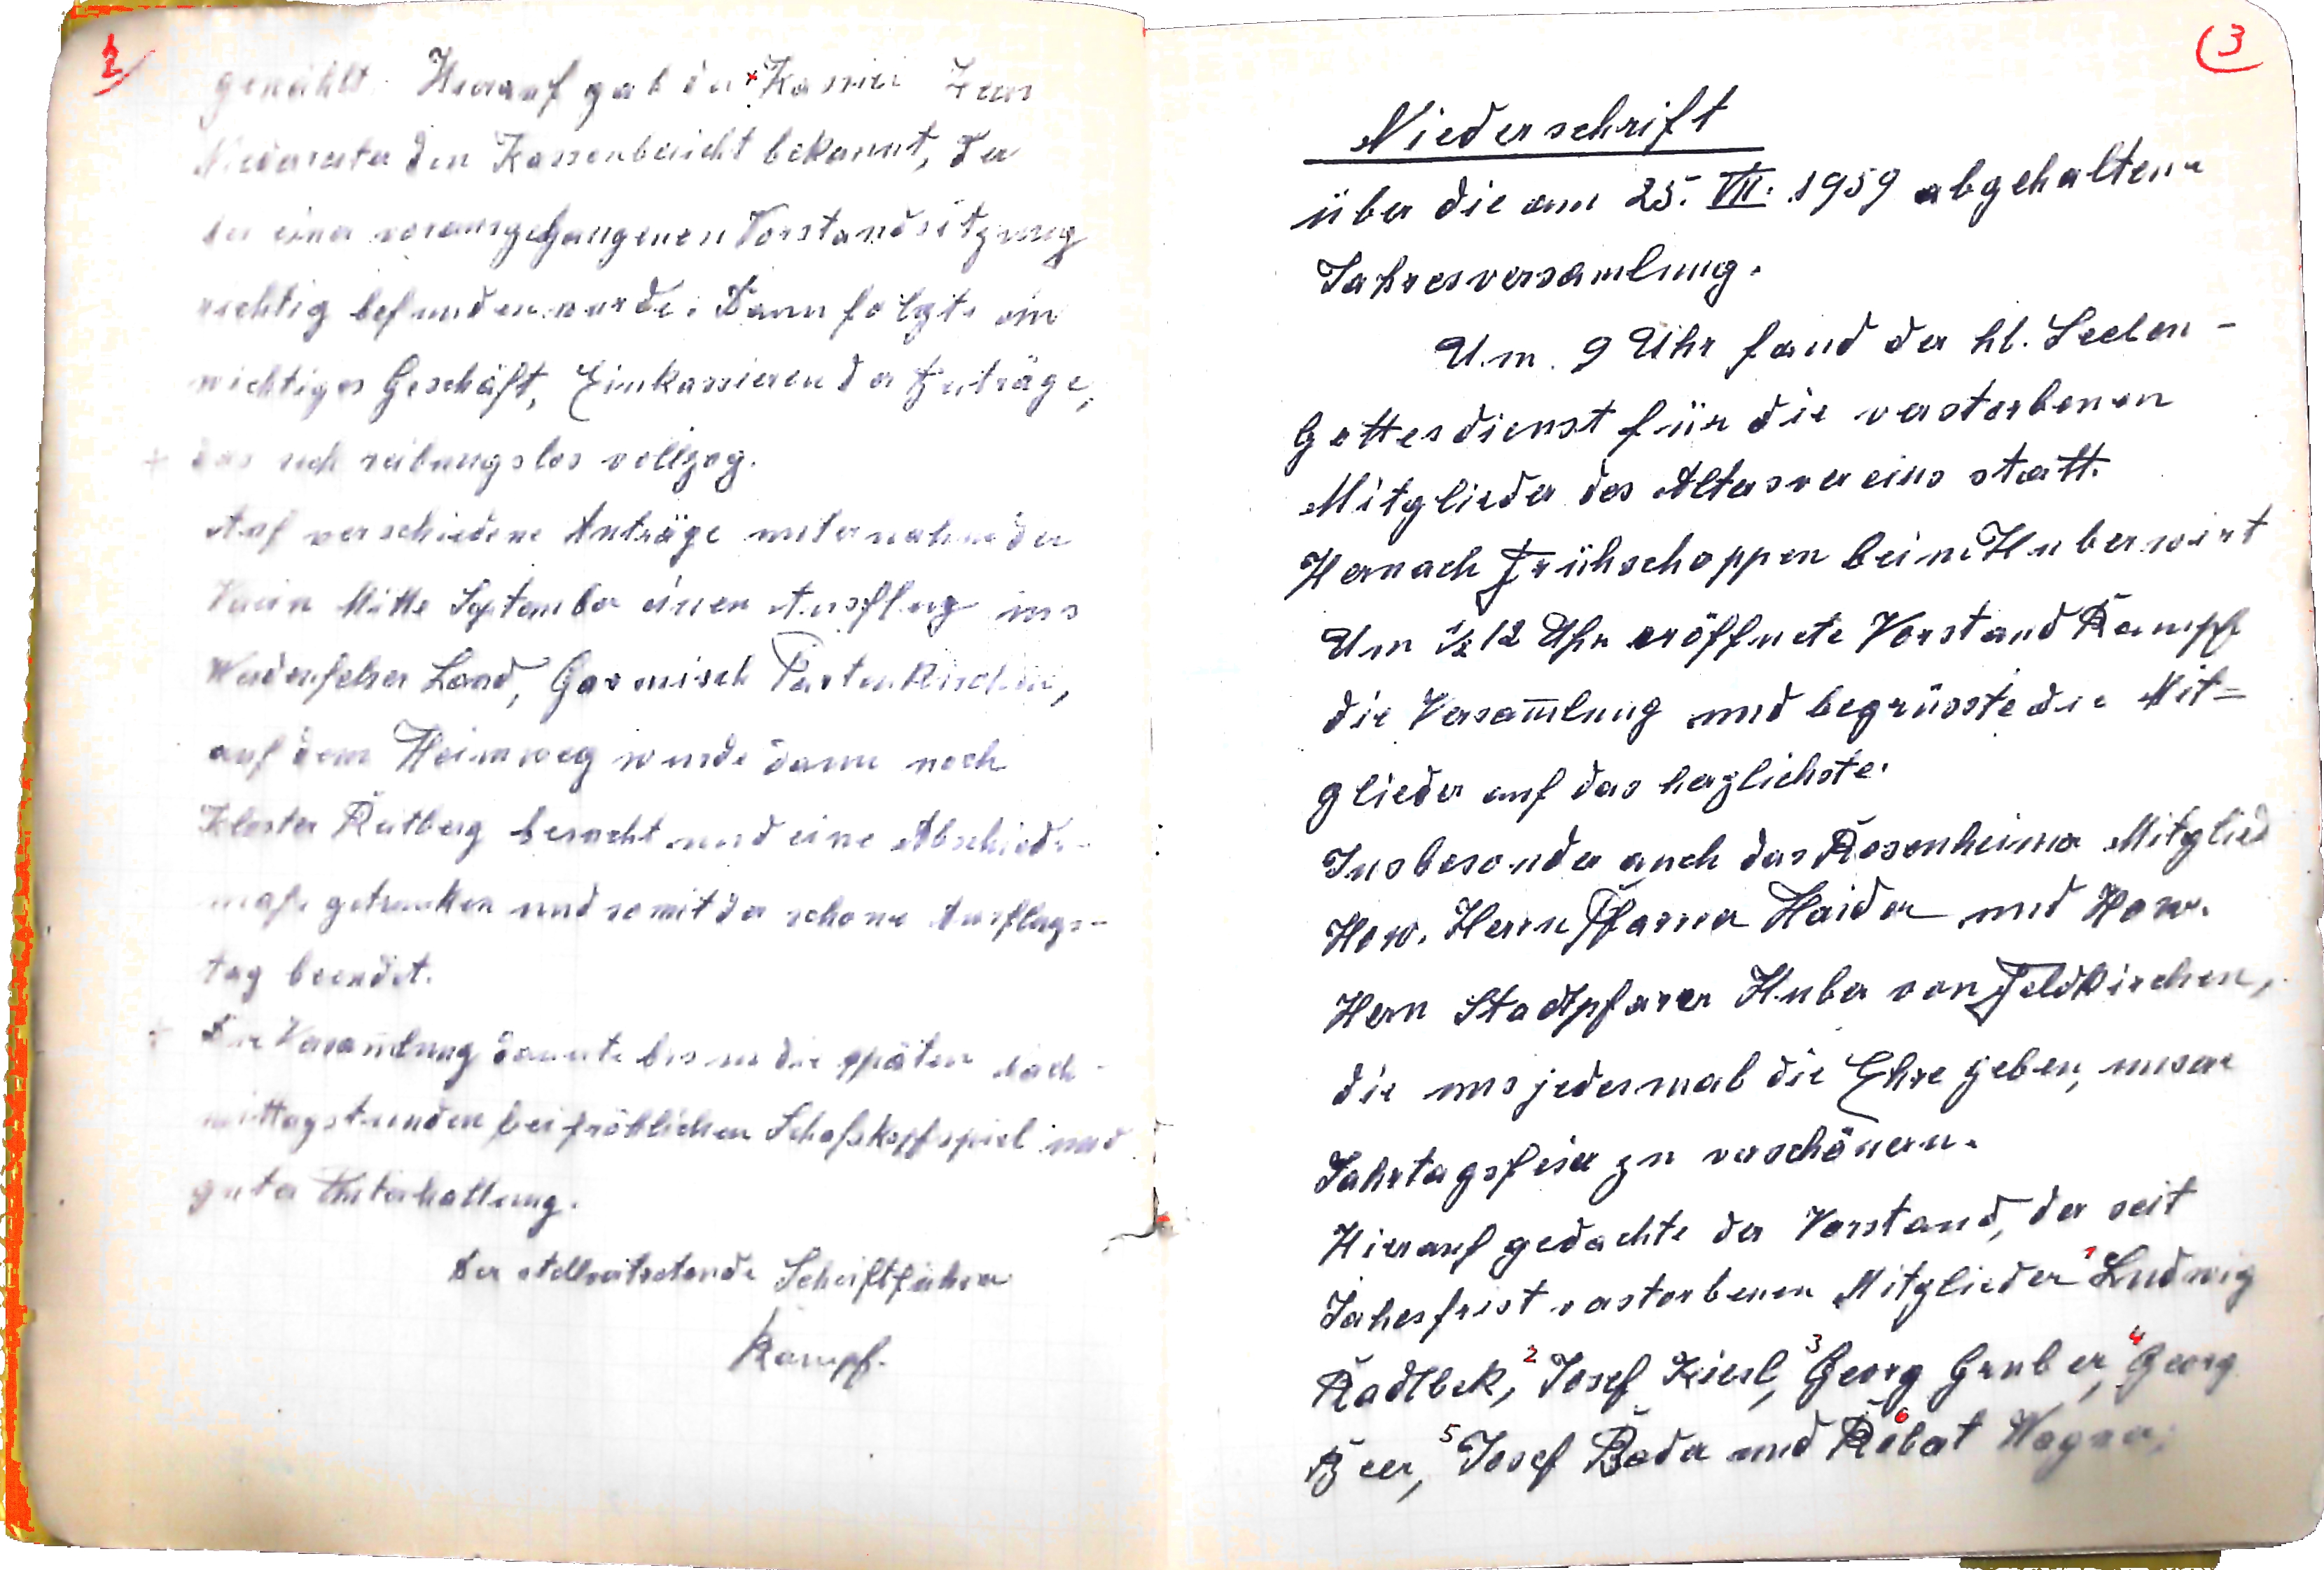 2
gewählt. Hierauf gab der Kassier
Niederreuter den Kassenbericht bekannt, der
bei einer vorausgegangenen Vorstandsitzung
richtig befunden wurde. Dann folgte ein
wichtiges Geschäft, Einkassieren der Beiträge,
+ das sich reibungslos vollzog.
Auf verschiedene Anträge unternahm der
Verein Mitte September einen Ausflug ins
Werdenfelser Land, Garmisch Partenkirchen,
auf dem Heimweg wurde dann noch
Kloster Reitberg besucht und eine Abschieds-
maß getrunken und somit der schöne Ausflugs-
tag beendet.
+ Die Versam̅lung dauerte bis in die späten Nach-
mittagstunden bei fröhlichen Schafskopfspiel und
guter Unterhaltung.
Der stellvertretende Schriftführer
Kampf.
3
Niederschrift
über die am 25. VII. 1959 abgehaltene
Jahresversamlung.
Um 9 Uhr fand der hl. Seelen-
Gottesdienst für die verstorbenen
Mitglieder des Altersvereins statt.
Hernach Frühschoppen beim Huberwirt
Um ½ 12 Uhr eröffnete Vorstand Kampf
die Versam̅lung und begrüsste die Mit=
glieder auf das herzlichste.
Insbesonder auch das Rosenheimer Mitglied
How. Herrn Pfarrer Haider und How.
Hern Stadtpfarrer Huber von Feldkirchen,
die uns jedesmal die Ehre geben, unsere
Jahrtagsfeier zu verschönern.
Hierauf gedachte der Vorstand, der seit
Jahesfrist verstorbenen Mitglieder 1 Ludwig
Radlbek, 2 Josef Kiesl, 3 Georg Gruber, 4 Georg
Beer, 5 Josef Bader und 6 Robert Wagner,